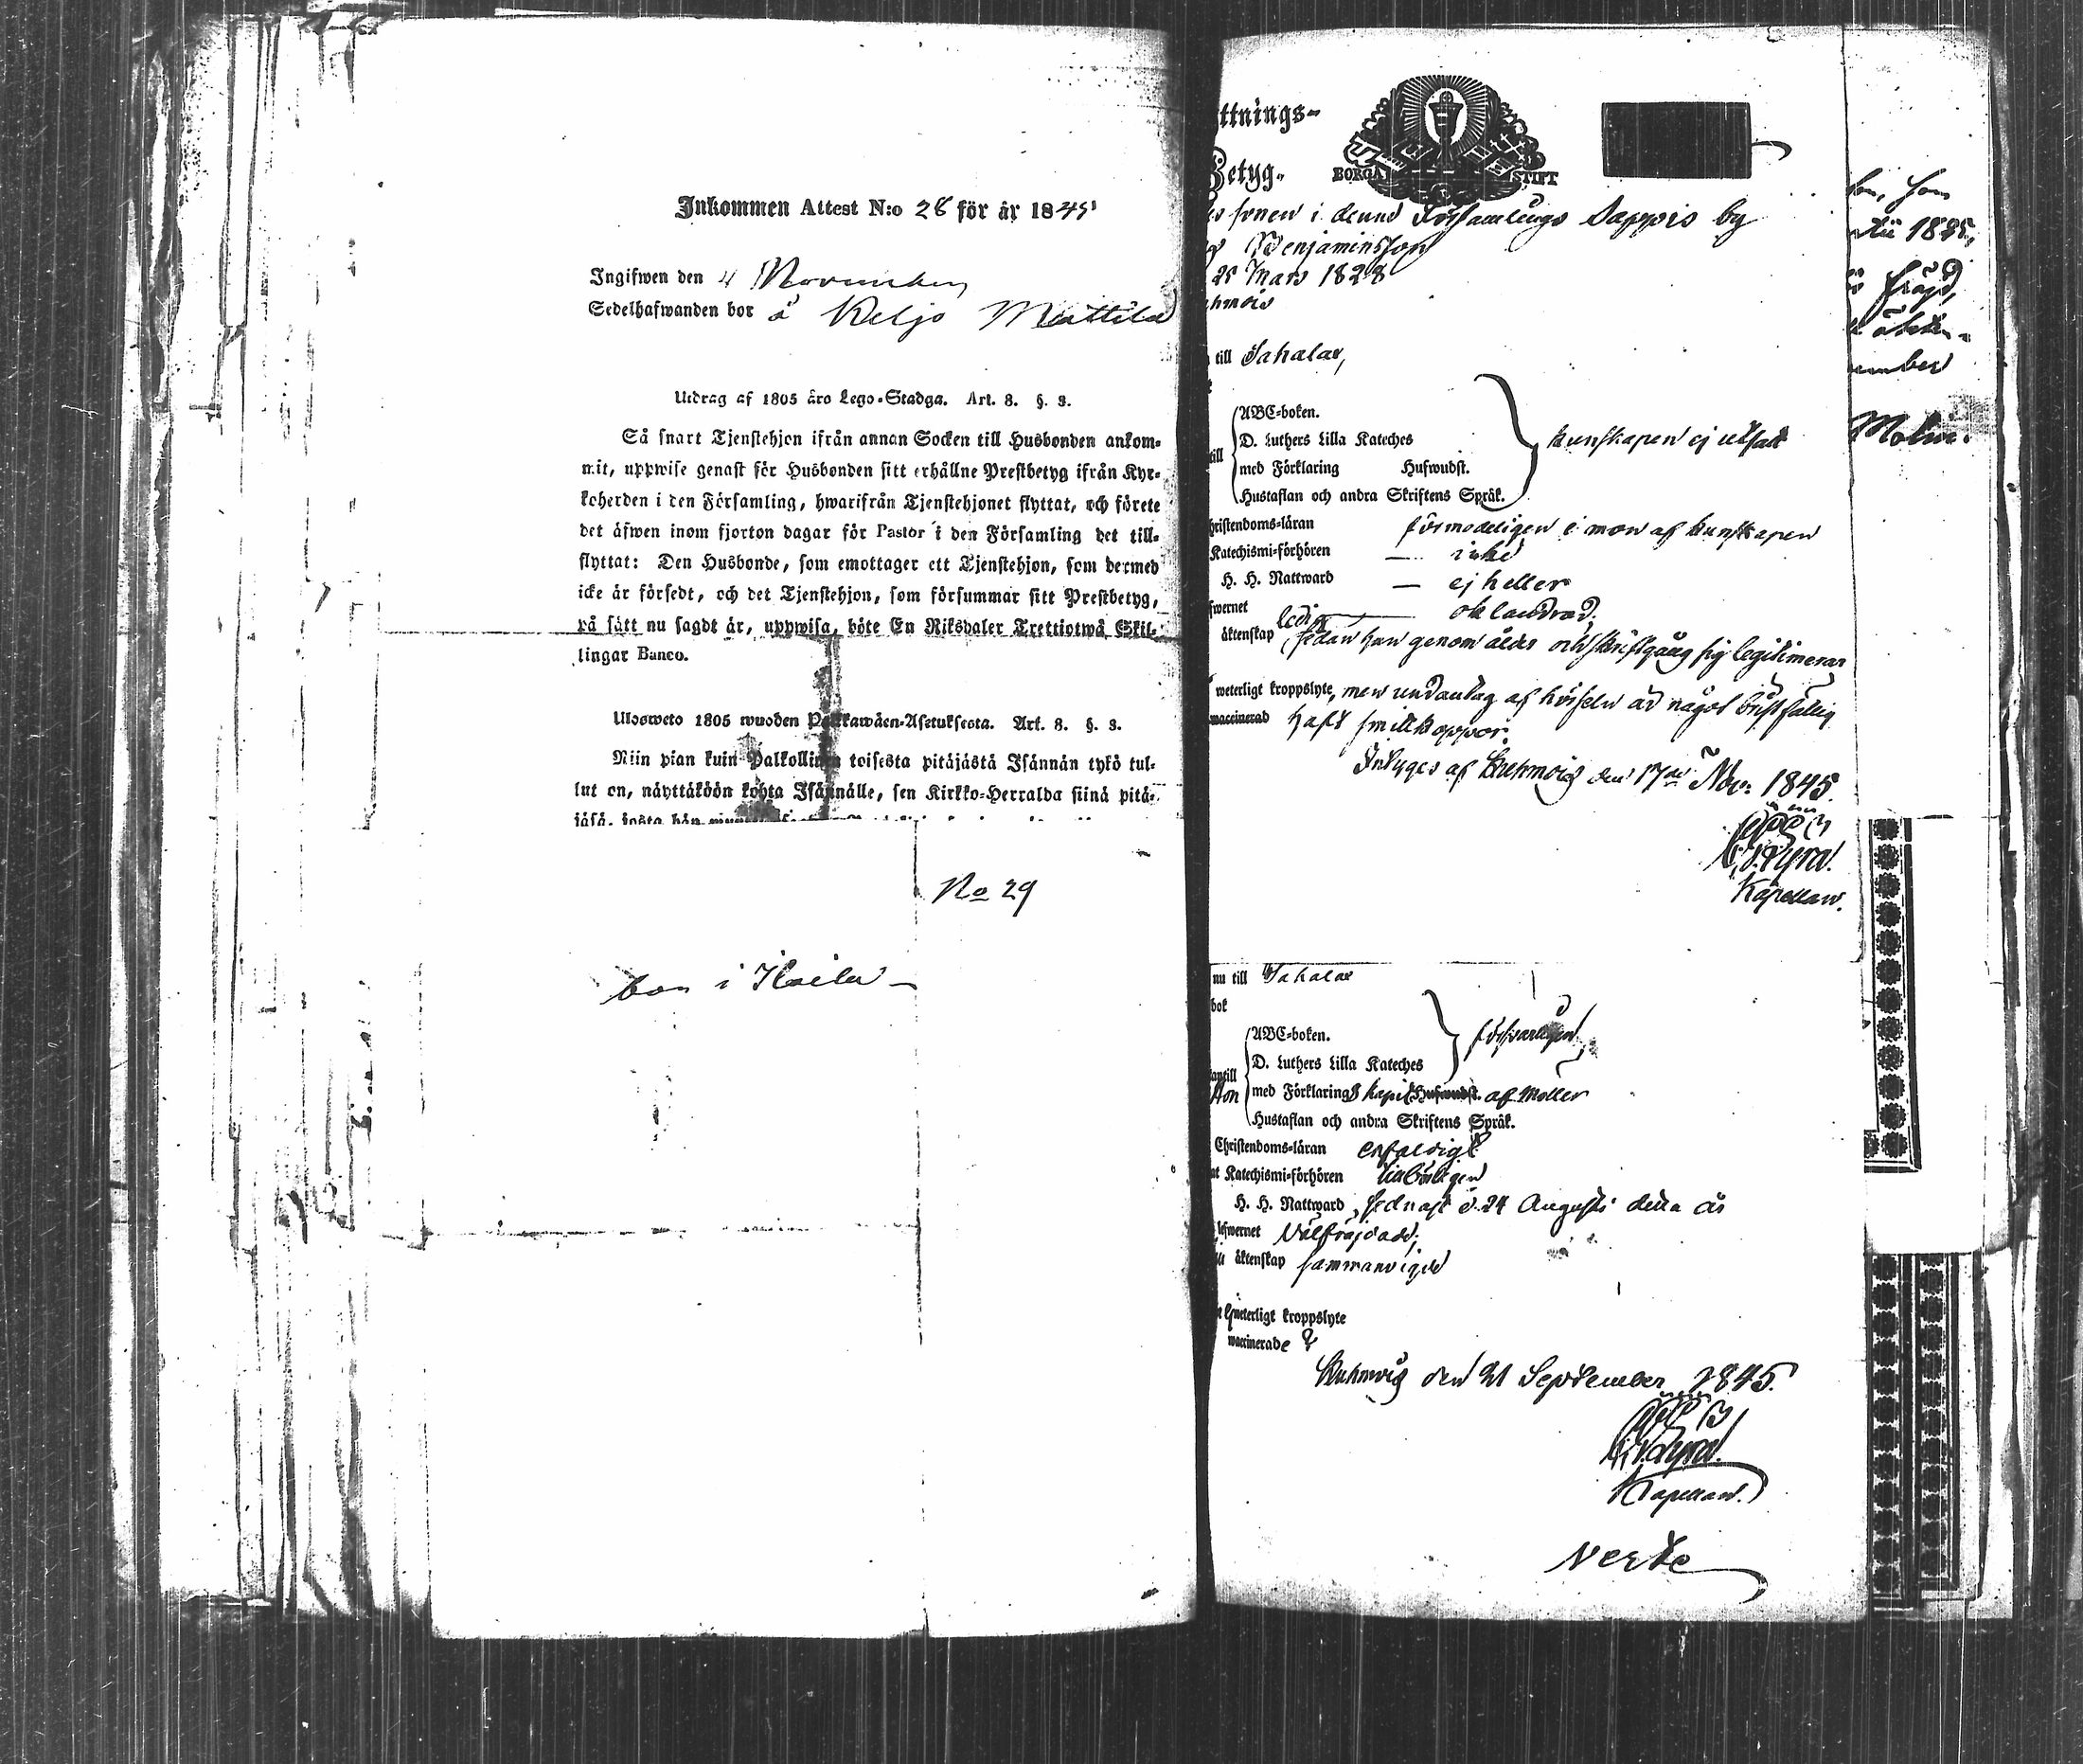 Inkommen Attest N:o 28 för år 1845
Ingifwen den 4 November
Sedelhafwanden bor å Keljo Mattila
Utdrag af 1805 åro Lego-Stadga. Art. 8. §. 3.
Så snart Tjenstehjon ifrån annan Socken till Husbonden ankom-
mit, uppwise genast för Husbonden sitt erhållne Prestbetyg ifrån Kyr-
koherden i den Församling, hwarifrån Tjenstehjonet flyttat, och förete
det äfwen inom fjorton dagar för Pastor i den Församling det till-
flyttat: Den Husbonde, som emottager ett Tjenstehjon, som dermed
icke är försedt, och det Tjenstehjon, som försummar sitt Prestbetyg,
på sätt nu sagdt är, uppwisa, böte En Riksdaler Trettiotwå Skil-
lingar Banco.
Ulosweto 1805 wuoden Palkkawäen-Asetuksesta. Art. 8. §. 3.
Niin pian kuin Palkollinen toisesta pitäjästä Isännän tykö tul-
lut on, näyttäköön kohta Isännälle, sen Kirkko-Herralda siinä pitä-
jäsä, josta hän
No 29
bor i Haila
ttnings-
Betyg.
BORGÅ STIFT
sonen i denna Församlings Sappis by
Benjaminsson
25 Mars 1828
hmois
till Sahalax,
ABC-boken.
D. Luthers Lilla Kateches
till
med Förklaring Hufwudst.
Hustaflan och andra Skriftens Språk.
kunskapen ej utsatt
hristendoms-läran förmodeligen i mon af kunskapen
Katechismi-förhören — icke
H. H. Nattward — ej heller
fwernet oklandrad.
äktenskap ledig sedan han genom ålder och skriftgång sig legitimerar
weterligt kroppslyte, men undantag af hörseln är något bristfällig
waccinerad haft smittkoppor.
Intygas af Kuhmois den 17de Nov: 1845.
Kapellan.
nu till Sahalax
bok
ABC-boken.
D. Luthers Lilla Kateches
försvarligen
antill
med Förklaring kapit Hufwudst. af Möller
Hustaflan och andra Skriftens Språk.
Christendoms-läran enfaldigt
at Katechismi-förhören tillbörligen
H. H. Nattward, sednast d. 24 Augusti detta år
efwernet Välfräjdade,
äktenskap sammanvigde
weterligt kroppslyte
waccinerade
Kuhmois den 21 September 1845.
Kapellan.
Verte
, son
1825,
fräjd,
ember